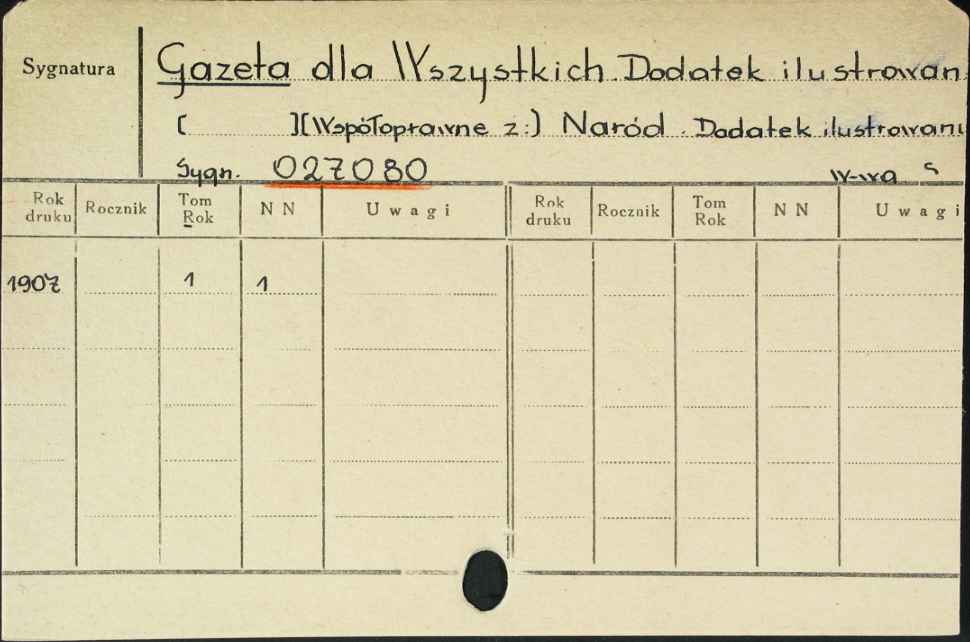 Sygnatura
Gazeta dla Wszystkich. Dodatek ilustrowan
[ ][Współoprawne z:] Naród. Dodatek ilustrowan
Sygn. 027080 W-wa
Rok druku Rocznik Tom Rok N N Uwagi Rok druku Rocznik Tom Rok N N Uwagi
1907 1 1